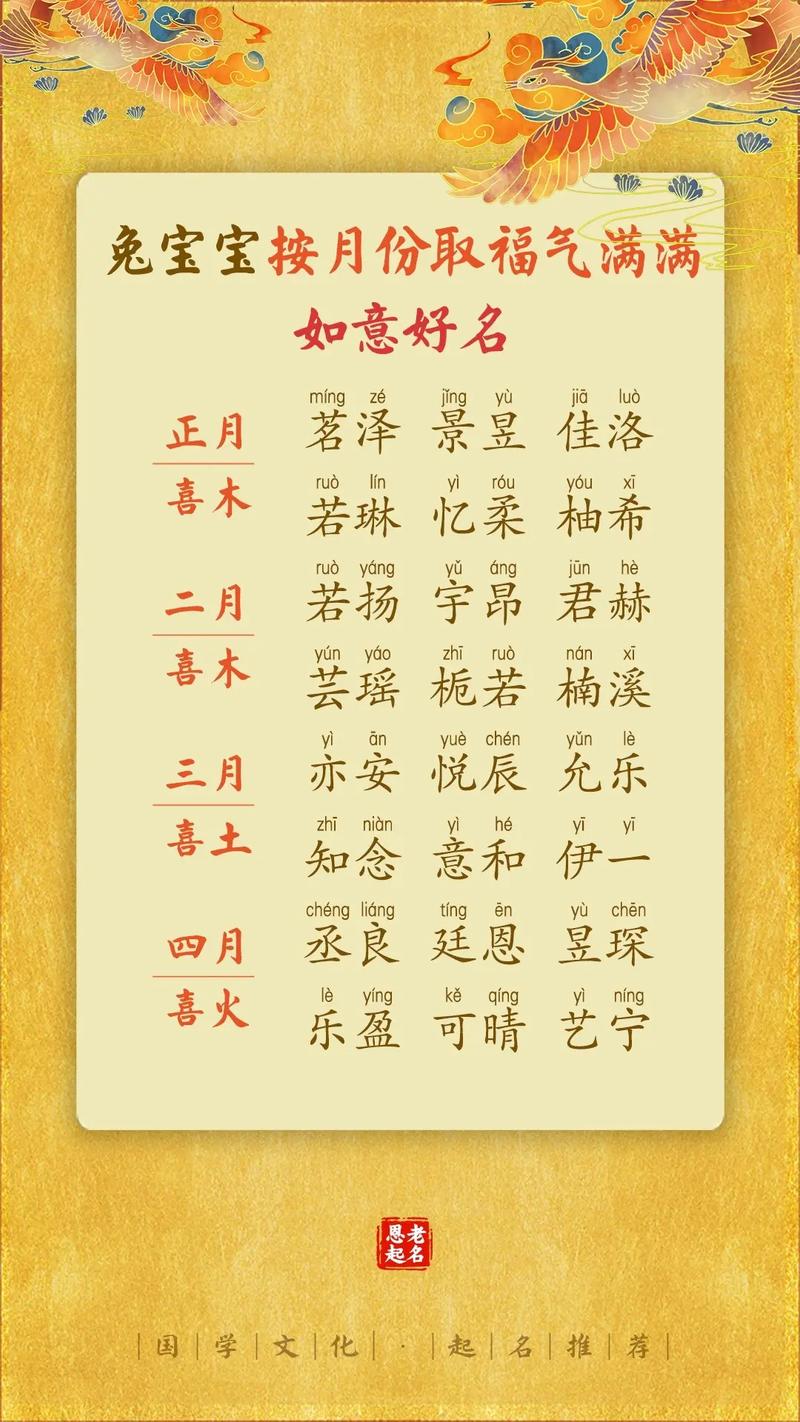 兔宝宝按月份取福气满满
如意好名
正月
喜木
míng zé jǐng yù jiā luò
茗泽 景昱 佳洛
ruò lín yì róu yóu xī
若琳 忆柔 柚希
二月
喜木
ruò yáng yǔ áng jūn hè
若扬 宇昂 君赫
yún yáo zhī ruò nán xī
芸瑶 栀若 楠溪
三月
喜土
yì ān yuè chén yǔn lè
亦安 悦辰 允乐
zhī niàn yì hé yī yī
知念 意和 伊一
四月
喜火
chéng liáng tíng ēn yù chēn
丞良 廷恩 昱琛
lè yíng kě qíng yì níng
乐盈 可晴 艺宁
老恩
名起
国学文化·起名推荐